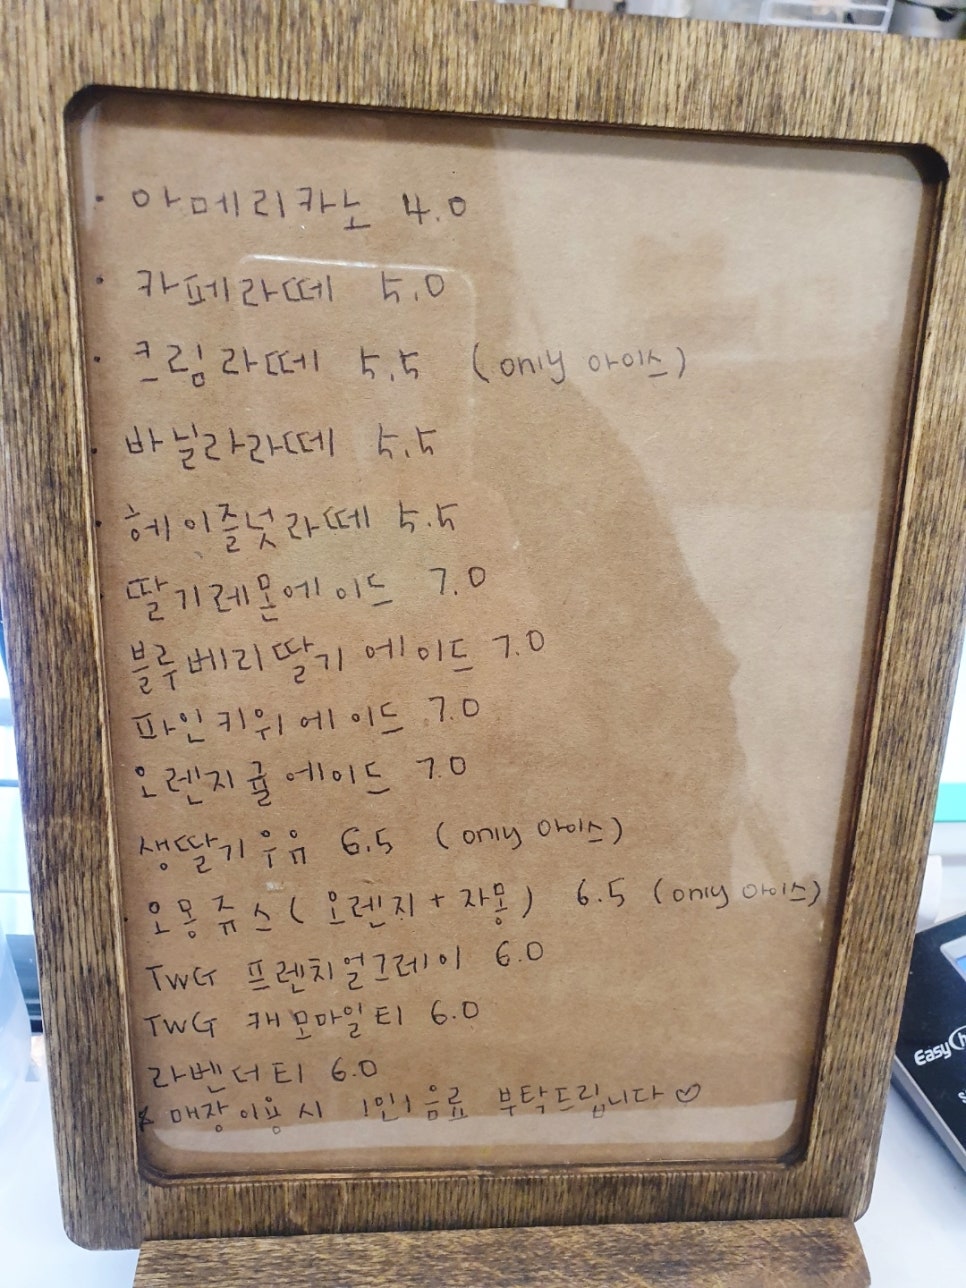 · 아메리카노 4.0
· 카페라떼 5.0
· 크림라떼 5.5 (only 아이스)
· 바닐라라떼 5.5
· 헤이즐넛라떼 5.5
딸기레몬에이드 7.0
블루베리딸기에이드 7.0
파인키위에이드 7.0
오렌지귤에이드 7.0
생딸기우유 6.5 (only 아이스)
· 오몽쥬스(오렌지+자몽) 6.5 (only 아이스)
TWG 프렌치얼그레이 6.0
TWG 캐모마일티 6.0
라벤더티 6.0
* 매장이용시 1인1음료 부탁드립니다♡
Easy